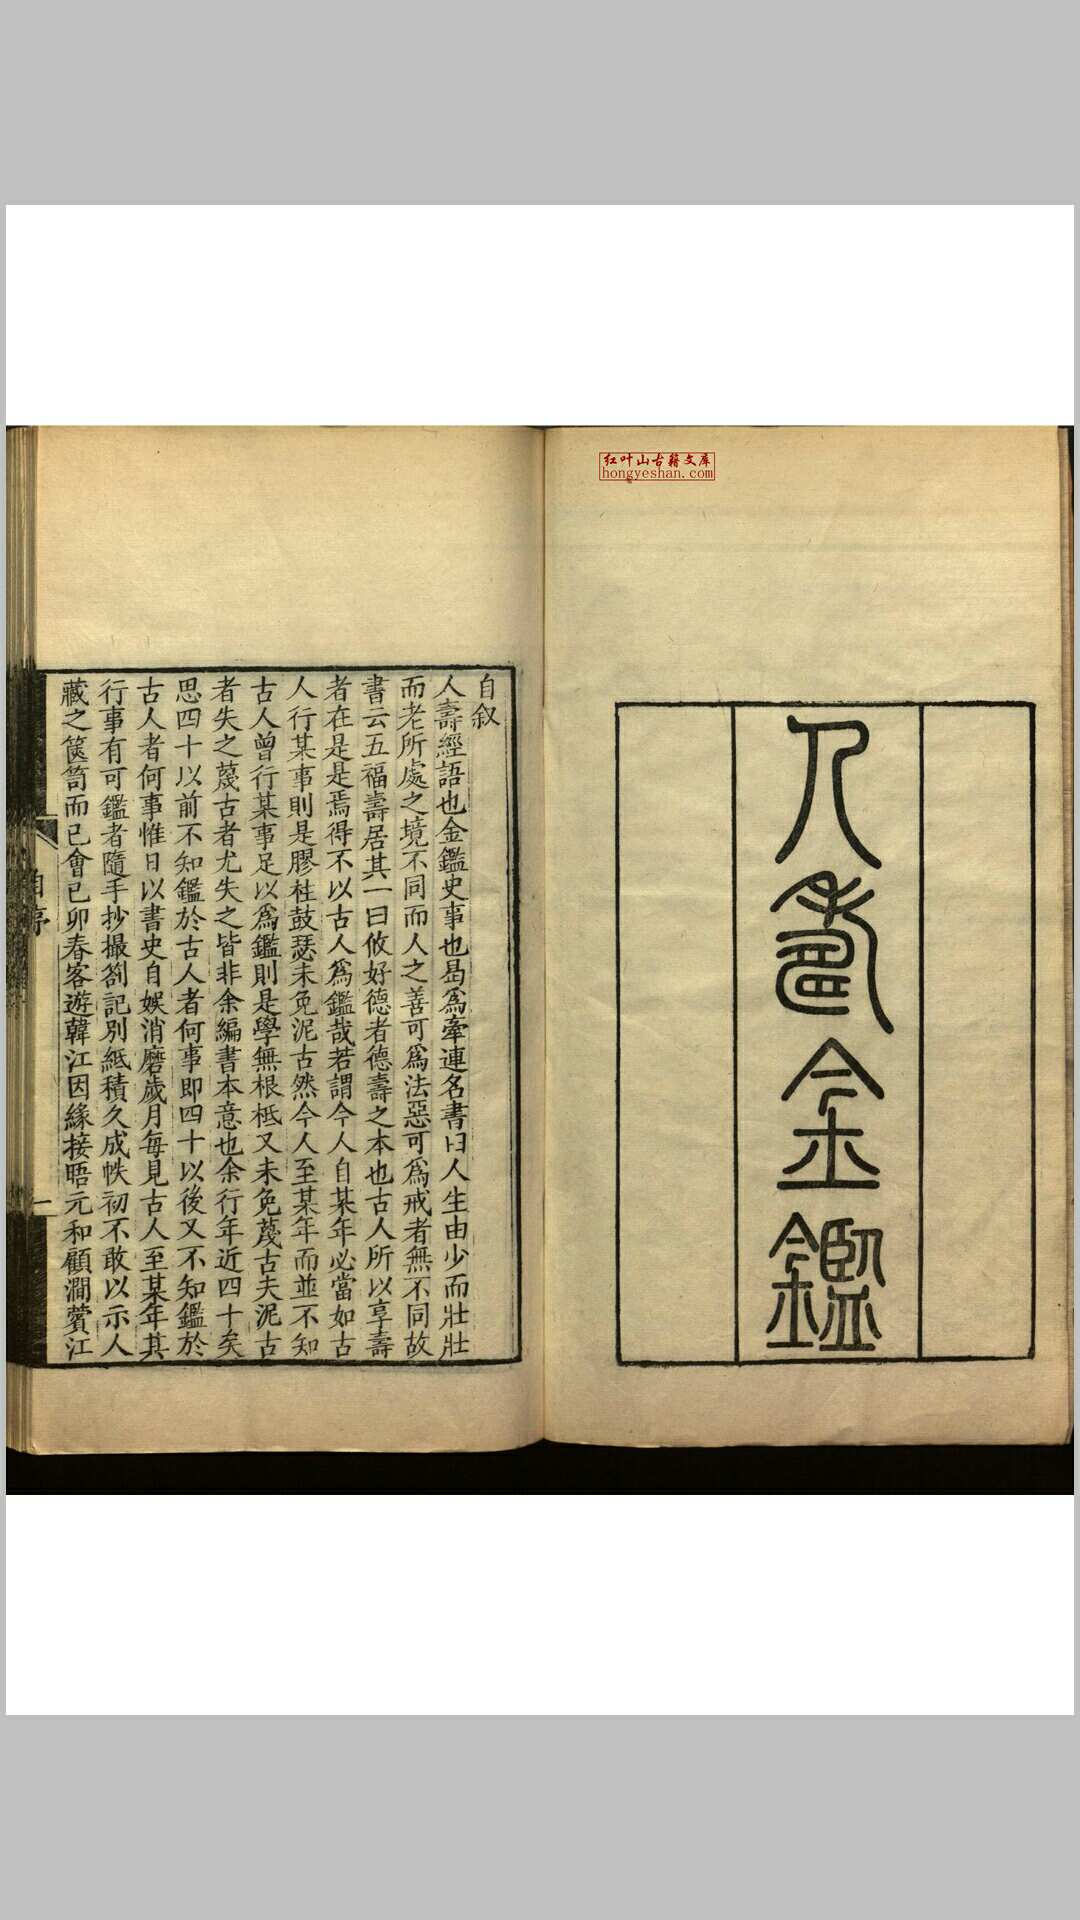 红叶山古籍文库
hongyeshan.com
人壽金鑑
自叙
人壽經語也金鑑史事也曷爲牽連名書曰人生由少而壯壯
而老所處之境不同而人之善可爲法惡可爲戒者無不同故
書云五福壽居其一曰攸好德者德壽之本也古人所以享壽
者在是是焉得不以古人爲鑑哉若謂今人自某年必當如古
人行某事則是膠柱鼓瑟未免泥古然今人至某年而並不知
古人曾行某事足以爲鑑則是學無根柢又未免蔑古夫泥古
者失之蔑古者尤失之皆非余編書本意也余行年近四十矣
思四十以前不知鑑於古人者何事即四十以後又不知鑑於
古人者何事惟日以書史自娛消磨歲月每見古人至某年其
行事有可鑑者隨手抄撮劄記別紙積久成帙初不敢以示人
藏之篋笥而已會已卯春客遊韓江因緣接晤元和顧澗薲江
自序
一